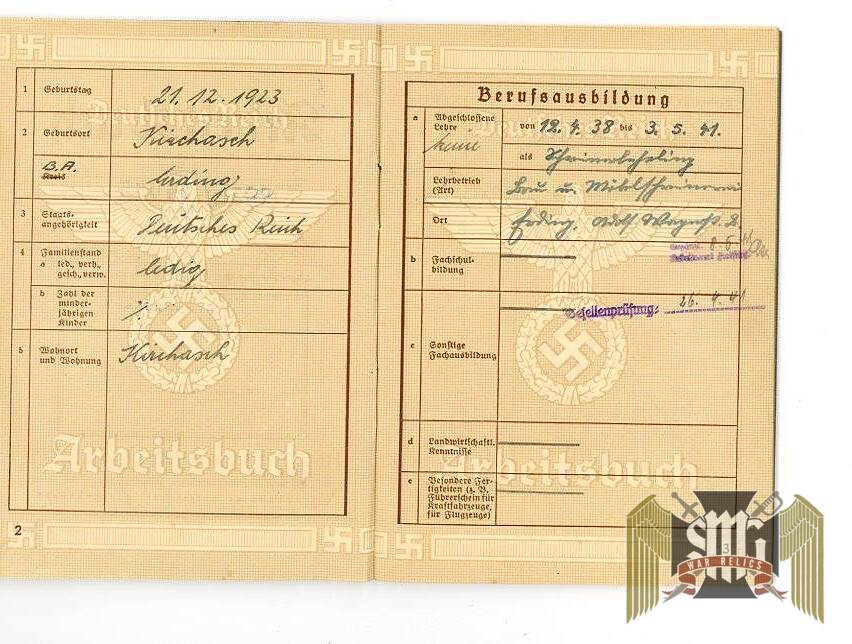 1 Geburtstag 21.12.1923
2 Geburtsort Kirchasch
B.A.
Kreis Erding
3 Staats-
angehörigkeit Deutsches Reich
4 Familienstand
a led., verh.,
gesch., verw. ledig
b Zahl der
minder-
jährigen
Kinder
5 Wohnort
und Wohnung Kirchasch
Deutsches Reich
Arbeitsbuch
2
Berufsausbildung
a Abgeschlossene
Lehre
keine
von 12.4.38 bis 3.5.41.
als Schreinerlehrling
Lehrbetrieb
(Art) Bau u. Möbelschreinerei
Ort Erding, Adolf Wagnerst.
b Fachschul-
bildung
Gesellenprüfung: 26.4.41
c Sonstige
Fachausbildung
d Landwirtschaftl.
Kenntnisse
e Besondere Fer-
tigkeiten (z. B.
Führerschein für
Kraftfahrzeuge,
für Flugzeuge)
Arbeitsbuch
3
SMG
WAR RELICS